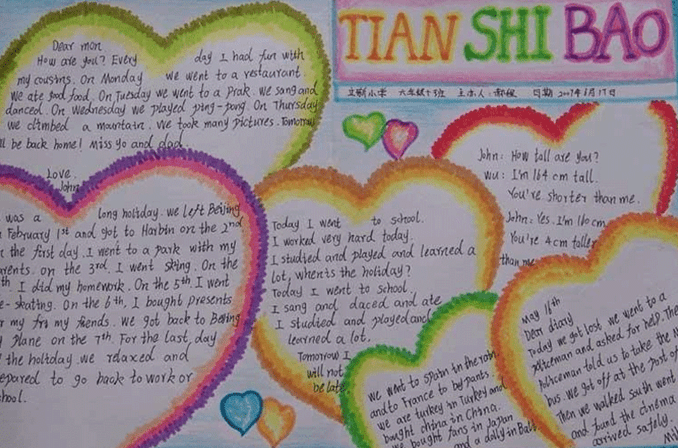 TIAN SHI BAO
日期 2007年6月17日
Dear mon
How are you? Every day I had fun with
my cousins. On Monday we went to a restaurant.
We ate good food. On Tuesday we went to a Prak. We sang and
danced. On Wednesday we played ping-pong. On Thursday
We climbed a mountain. We took many pictures. Tomorrow
ll be back home! Miss yo and dad.
Love.
John
was a long holiday. we left Beijing
February 1st and got to Harbin on the 2nd
the first day. I went to a park with my
arents. on the 3rd I went sking. On the
th I did my homework. On the 5th I went
e-skating. On the 6th, I bought presents
r my fri my friends. we got back to Beijing
plane on the 7th. For the last day
the holiday we rdaxed and
epared to go back to work or
chool.
Today I went to school.
I worked very hard today.
I studied and played and learned a
lot, when's the holiday?
Today I went to school
I sang and daced and ate
I studied and played and
learned a lot.
Tomorrow I
will not
be late
John: How tall are you?
wu: I'm 164 cm tall.
You're shorter than me.
John: Yes. I'm 160 cm
You're 4 cm taller
than me
we went to Spain in the
and to France to buy pants
we are turkey in Turkey and
bught china in China.
we bought fans in Japan
and a dolly in Bali
May 16th
Dear diary
Today we got lost. we went to a
Policeman and asked for help. The
Policeman told us to take the
bus. we got off at the post of
Then we walked south went
and found the cinema
arrived safely.